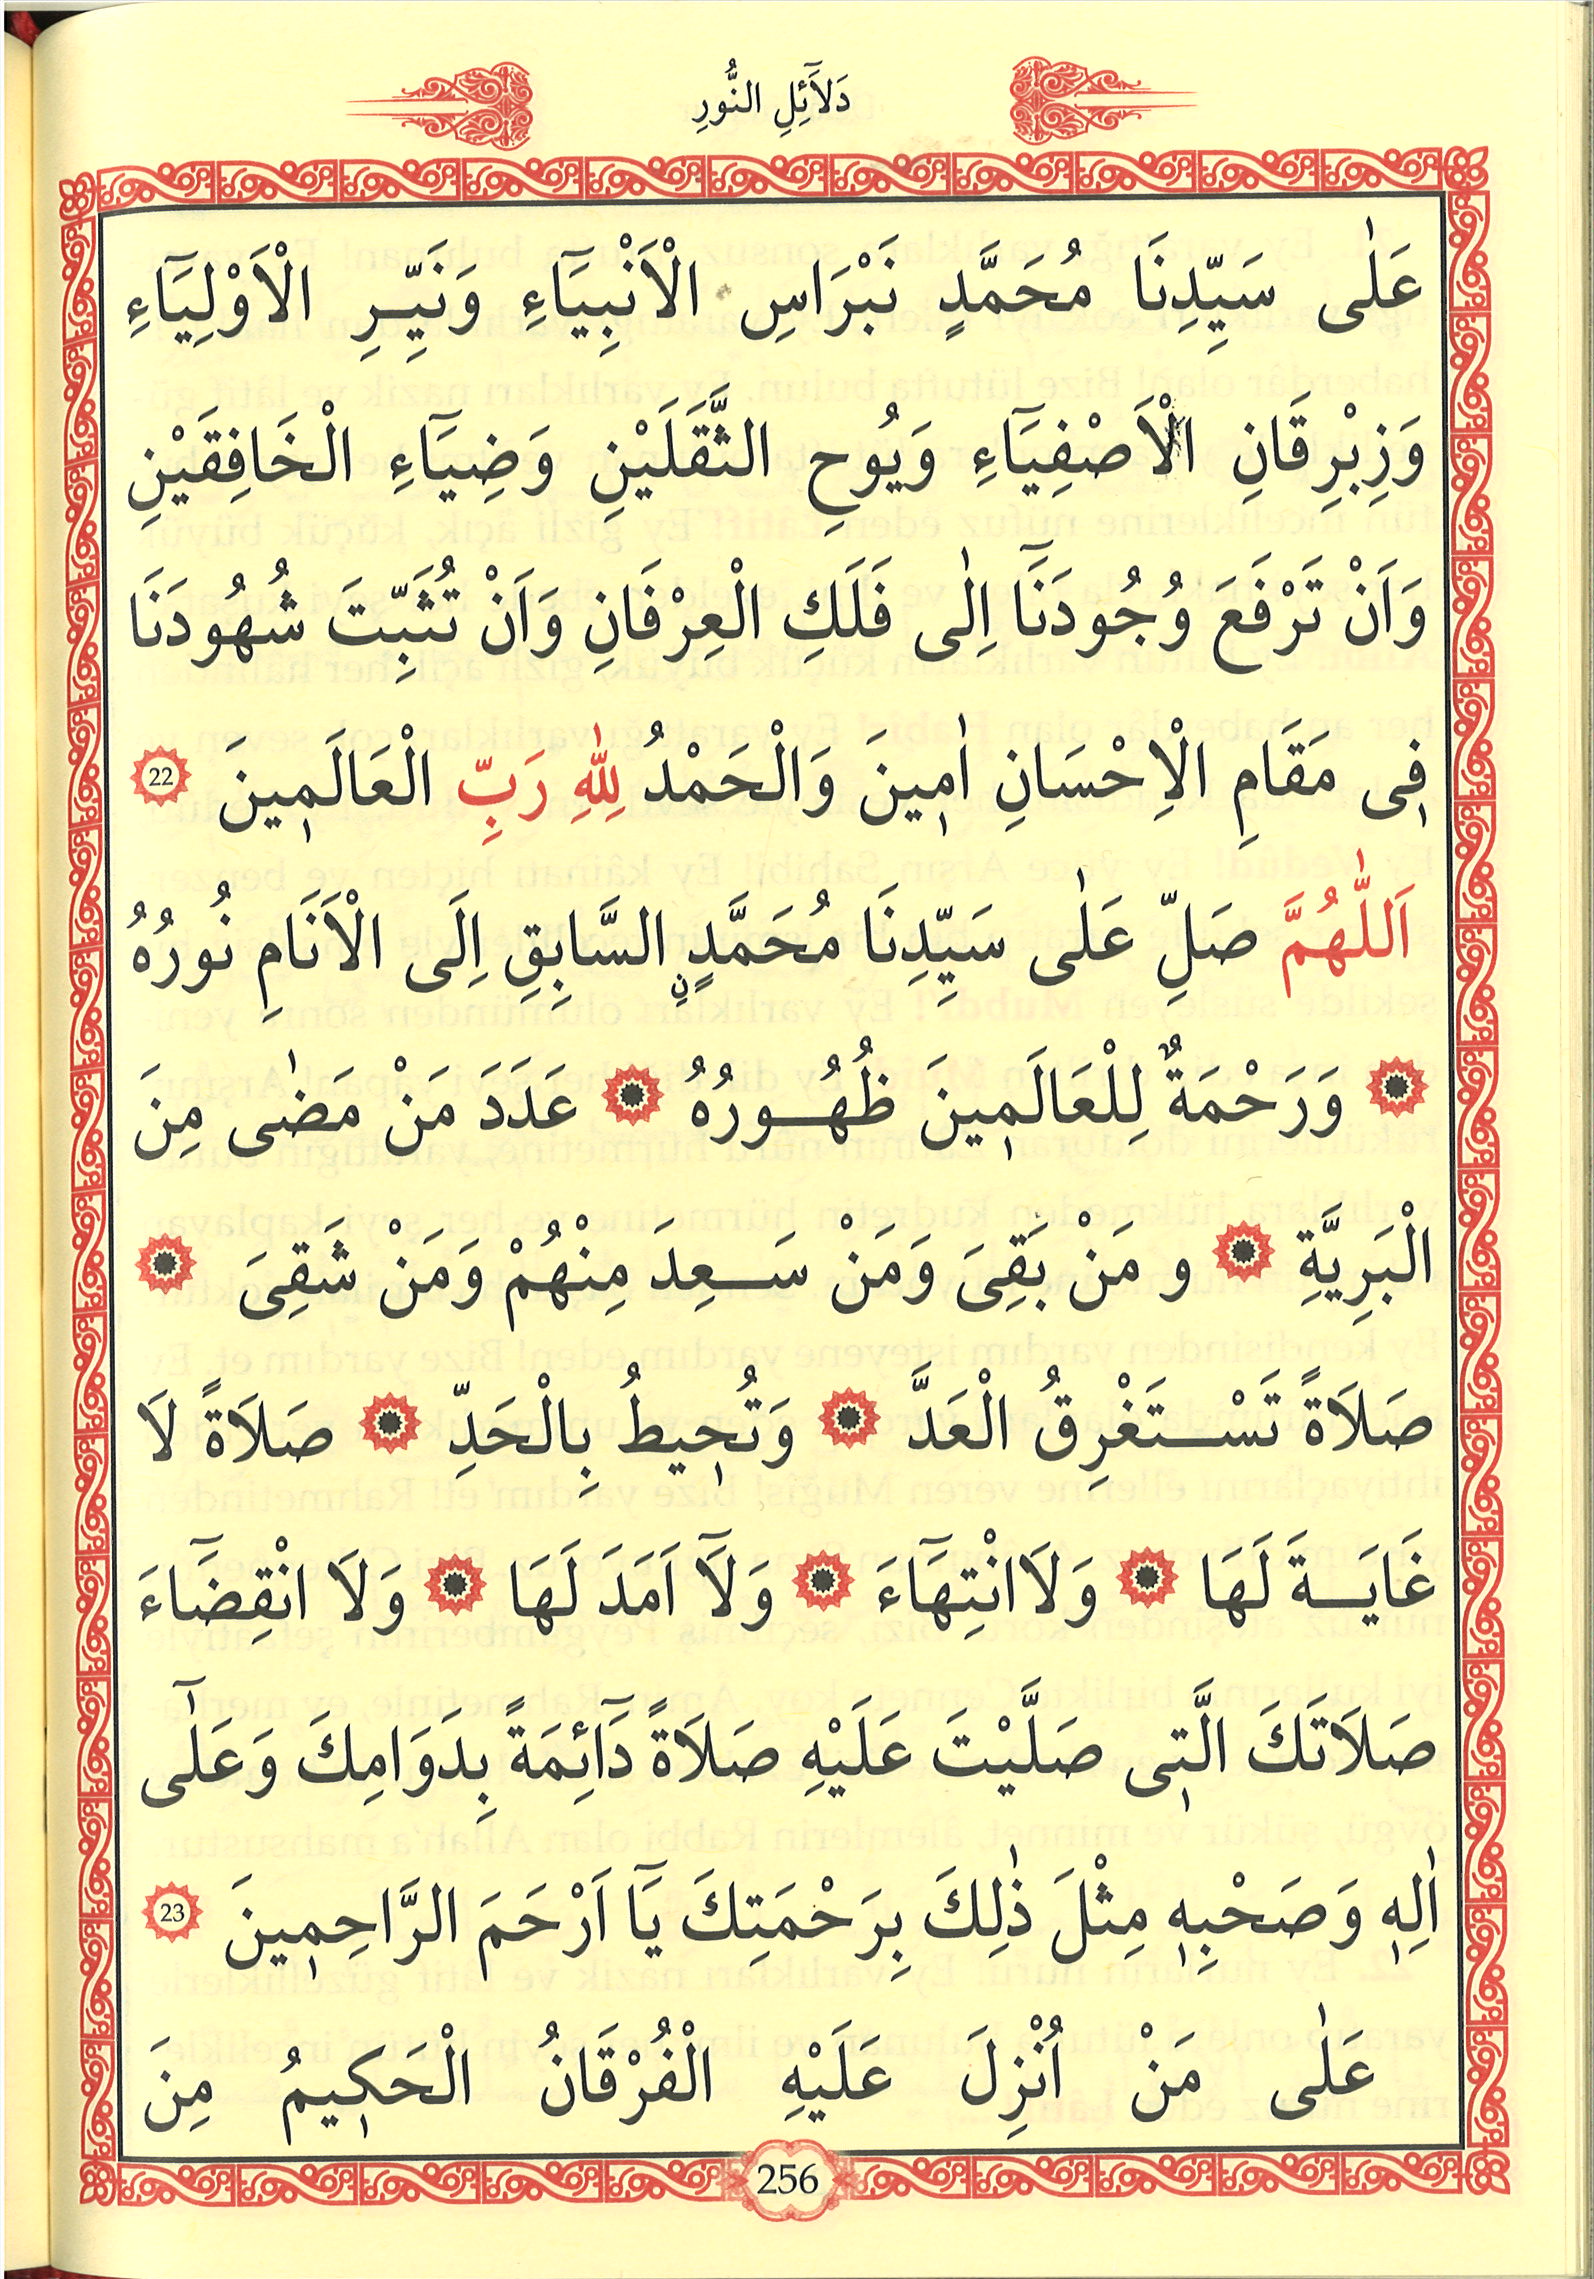 دَلَآئِلِ النُّورِ
عَلٰى سَيِّدِنَا مُحَمَّدٍ نَبْرَاسِ الْاَنْبِيَآءِ وَنَيِّرِ الْاَوْلِيَآءِ
وَزِبْرِقَانِ الْاَصْفِيَآءِ وَيُوحِ الثَّقَلَيْنِ وَضِيَآءِ الْخَافِقَيْنِ
وَاَنْ تَرْفَعَ وُجُودَنَآ اِلٰى فَلَكِ الْعِرْفَانِ وَاَنْ تُثَبِّتَ شُهُودَنَا
فٖى مَقَامِ الْاِحْسَانِ اٰمٖينَ وَالْحَمْدُ لِلّٰهِ رَبِّ الْعَالَمٖينَ 22
اَللّٰهُمَّ صَلِّ عَلٰى سَيِّدِنَا مُحَمَّدٍنِ السَّابِقِ اِلَى الْاَنَامِ نُورُهُ
وَرَحْمَةٌ لِلْعَالَمٖينَ ظُهُورُهُ عَدَدَ مَنْ مَضٰى مِنَ
الْبَرِيَّةِ و مَنْ بَقِىَ وَمَنْ سَعِدَ مِنْهُمْ وَمَنْ شَقِىَ
صَلَاةً تَسْتَغْرِقُ الْعَدَّ وَتُحٖيطُ بِالْحَدِّ صَلَاةً لَا
غَايَةَ لَهَا وَلَاانْتِهَآءَ وَلَآ اَمَدَ لَهَا وَلَا انْقِضَآءَ
صَلَاتَكَ الَّتٖى صَلَّيْتَ عَلَيْهِ صَلَاةً دَآئِمَةً بِدَوَامِكَ وَعَلٰٓى
اٰلِهٖ وَصَحْبِهٖ مِثْلَ ذٰلِكَ بِرَحْمَتِكَ يَآ اَرْحَمَ الرَّاحِمٖينَ 23
عَلٰى مَنْ اُنْزِلَ عَلَيْهِ الْفُرْقَانُ الْحَكٖيمُ مِنَ
256